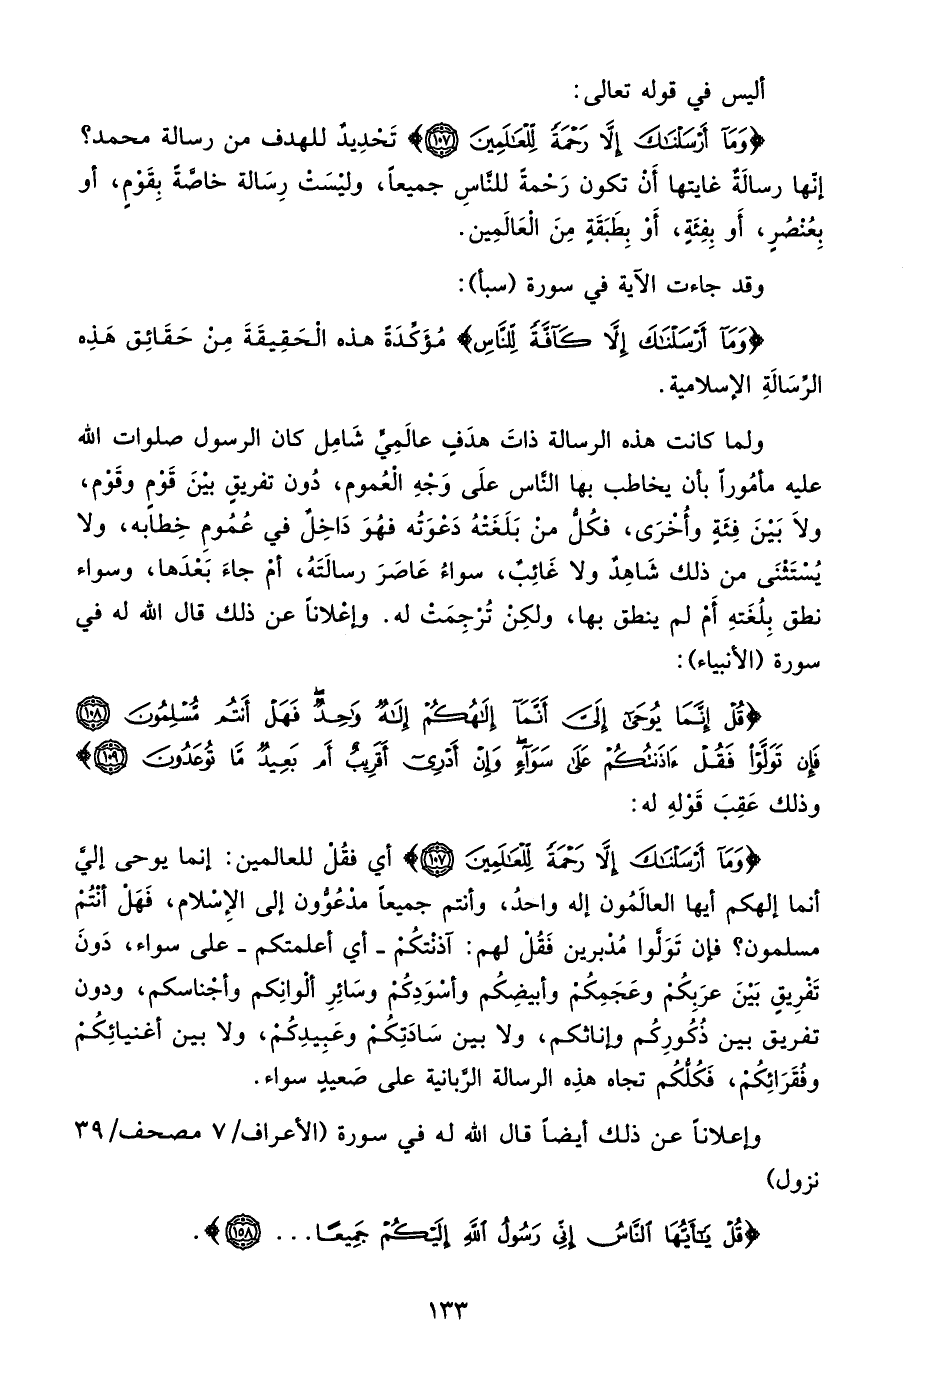 أليس في قوله تعالى:
﴿وَمَآ أَرْسَلْنَٰكَ إِلَّا رَحْمَةً لِّلْعَٰلَمِينَ ﴿١٠٧﴾﴾ تَحْدِيدٌ للهدف من رسالة محمد؟
إنّها رسالَةٌ غايتها أَنْ تكون رَحْمةً للنَّاسِ جميعاً، وليْسَتْ رِسَالة خاصَّةً بِقَوْمٍ، أو
بِعُنْصُرٍ، أَو بِفِئَةٍ، أَوْ بِطَبَقَةٍ مِنَ الْعَالَمِين.
وقد جاءت الآية في سورة (سبأ):
﴿وَمَآ أَرْسَلْنَٰكَ إِلَّا كَآفَّةً لِّلنَّاسِ﴾ مُؤَكِّدَةً هذه الْحَقِيقَةَ مِنْ حَقَائِق هَذِه
الرِّسَالَةِ الإسلامية.
ولما كانت هذه الرسالة ذاتَ هدَفٍ عالَمِيٍّ شَامِل كان الرسول صلوات الله
عليه مأمُوراً بأن يخاطب بها النَّاس علَى وَجْهِ الْعُموم، دُون تفريقٍ بيْنَ قَوْمٍ وقَوْم،
ولاَ بَيْنَ فِئَةٍ وأُخْرَى، فكُلُّ منْ بَلَغَتْهُ دَعْوَتُه فهُوَ دَاخِلٌ في عُمُومِ خِطابه، ولا
يُسْتَثْنَى من ذلك شَاهِدٌ ولا غَائِبٌ، سواءُ عَاصَرَ رسالَتَهُ، أمْ جاءَ بَعْدَها، وسواء
نطق بِلُغَتهِ أمْ لم ينطق بها، ولكِنْ تُرْجِمَتْ له. وإعْلاناً عن ذلك قال الله له في
سورة (الأنبياء):
﴿قُلْ إِنَّمَا يُوحَىٰٓ إِلَيَّ أَنَّمَآ إِلَٰهُكُمْ إِلَٰهٌ وَٰحِدٌ ۖ فَهَلْ أَنتُم مُّسْلِمُونَ ﴿١٠٨﴾
فَإِن تَوَلَّوْا۟ فَقُلْ ءَاذَنتُكُمْ عَلَىٰ سَوَآءٍ ۖ وَإِنْ أَدْرِىٓ أَقَرِيبٌ أَم بَعِيدٌ مَّا تُوعَدُونَ ﴿١٠٩﴾﴾
وذلك عَقِبَ قَوْلهِ له:
﴿وَمَآ أَرْسَلْنَٰكَ إِلَّا رَحْمَةً لِّلْعَٰلَمِينَ ﴿١٠٧﴾﴾ أي فقُلْ للعالمين: إنما يوحى إليَّ
أنما إلهكم أيها العالَمُون إله واحدُ، وأنتم جميعاً مدْعُوُّون إلى الإسْلام، فَهَلْ أَنْتُمْ
مسلمون؟ فإن تَوَلَّوا مُدْبرين فَقُلْ لهم: آذنْتكُمْ ـ أي أعلمتكم ـ على سواء، دَونَ
تَفْريقٍ بَيْنَ عرَبِكُمْ وعَجَمِكُمْ وأبيضِكُم وأسْوَدِكُمْ وسَائِرِ ألْوانِكم وأجْناسكم، ودون
تفريق بين ذُكُورِكُم وإناثكم، ولا بين سَادَتِكُمْ وعَبِيدِكُمْ، ولا بين أغنيائِكُمْ
وفُقَرَائِكُمْ، فَكُلُّكُم تجاه هذِه الرسالة الرَّبانية على صَعيدٍ سواء.
وإعلاناً عن ذلك أيضاً قال الله له في سورة (الأعراف/ ٧ مصحف/ ٣٩
نزول)
﴿قُلْ يَٰٓأَيُّهَا ٱلنَّاسُ إِنِّى رَسُولُ ٱللَّهِ إِلَيْكُمْ جَمِيعًا... ﴿١٥٨﴾﴾.
١٣٣